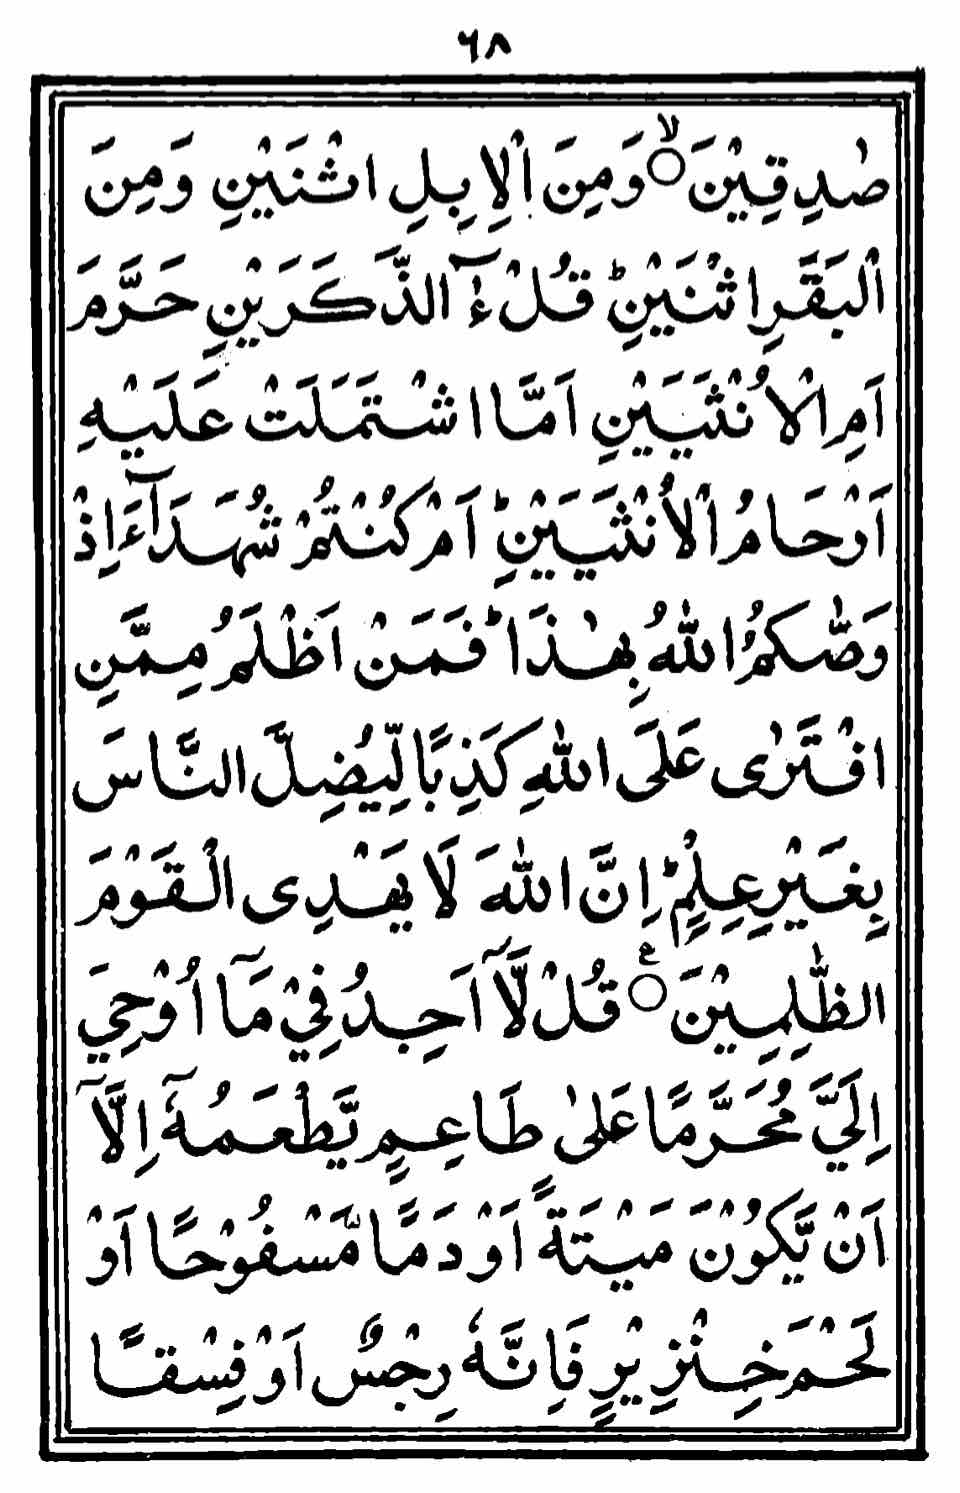 ٦٨
صٰدِقِيْنَ ۙ○ وَمِنَ الْاِبِلِ اثْنَيْنِ وَمِنَ
الْبَقَرِ اثْنَيْنِ ؕ قُلْ ءٰٓالذَّكَرَيْنِ حَرَّمَ
اَمِ الْاُنْثَيَيْنِ اَمَّا اشْتَمَلَتْ عَلَيْهِ
اَرْحَامُ الْاُنْثَيَيْنِ ؕ اَمْ كُنْتُمْ شُهَدَآءَ اِذْ
وَصّٰىكُمُ اللّٰهُ بِهٰذَا ۚ فَمَنْ اَظْلَمُ مِمَّنِ
افْتَرٰى عَلَى اللّٰهِ كَذِبًا لِّيُضِلَّ النَّاسَ
بِغَيْرِ عِلْمٍ ؕ اِنَّ اللّٰهَ لَا يَهْدِى الْقَوْمَ
الظّٰلِمِيْنَ ○ع قُلْ لَّاۤ اَجِدُ فِيْ مَاۤ اُوْحِيَ
اِلَيَّ مُحَرَّمًا عَلٰى طَاعِمٍ يَّطْعَمُهٗۤ اِلَّاۤ
اَنْ يَّكُوْنَ مَيْتَةً اَوْ دَمًا مَّسْفُوْحًا اَوْ
لَحْمَ خِنْزِيْرٍ فَاِنَّهٗ رِجْسٌ اَوْ فِسْقًا